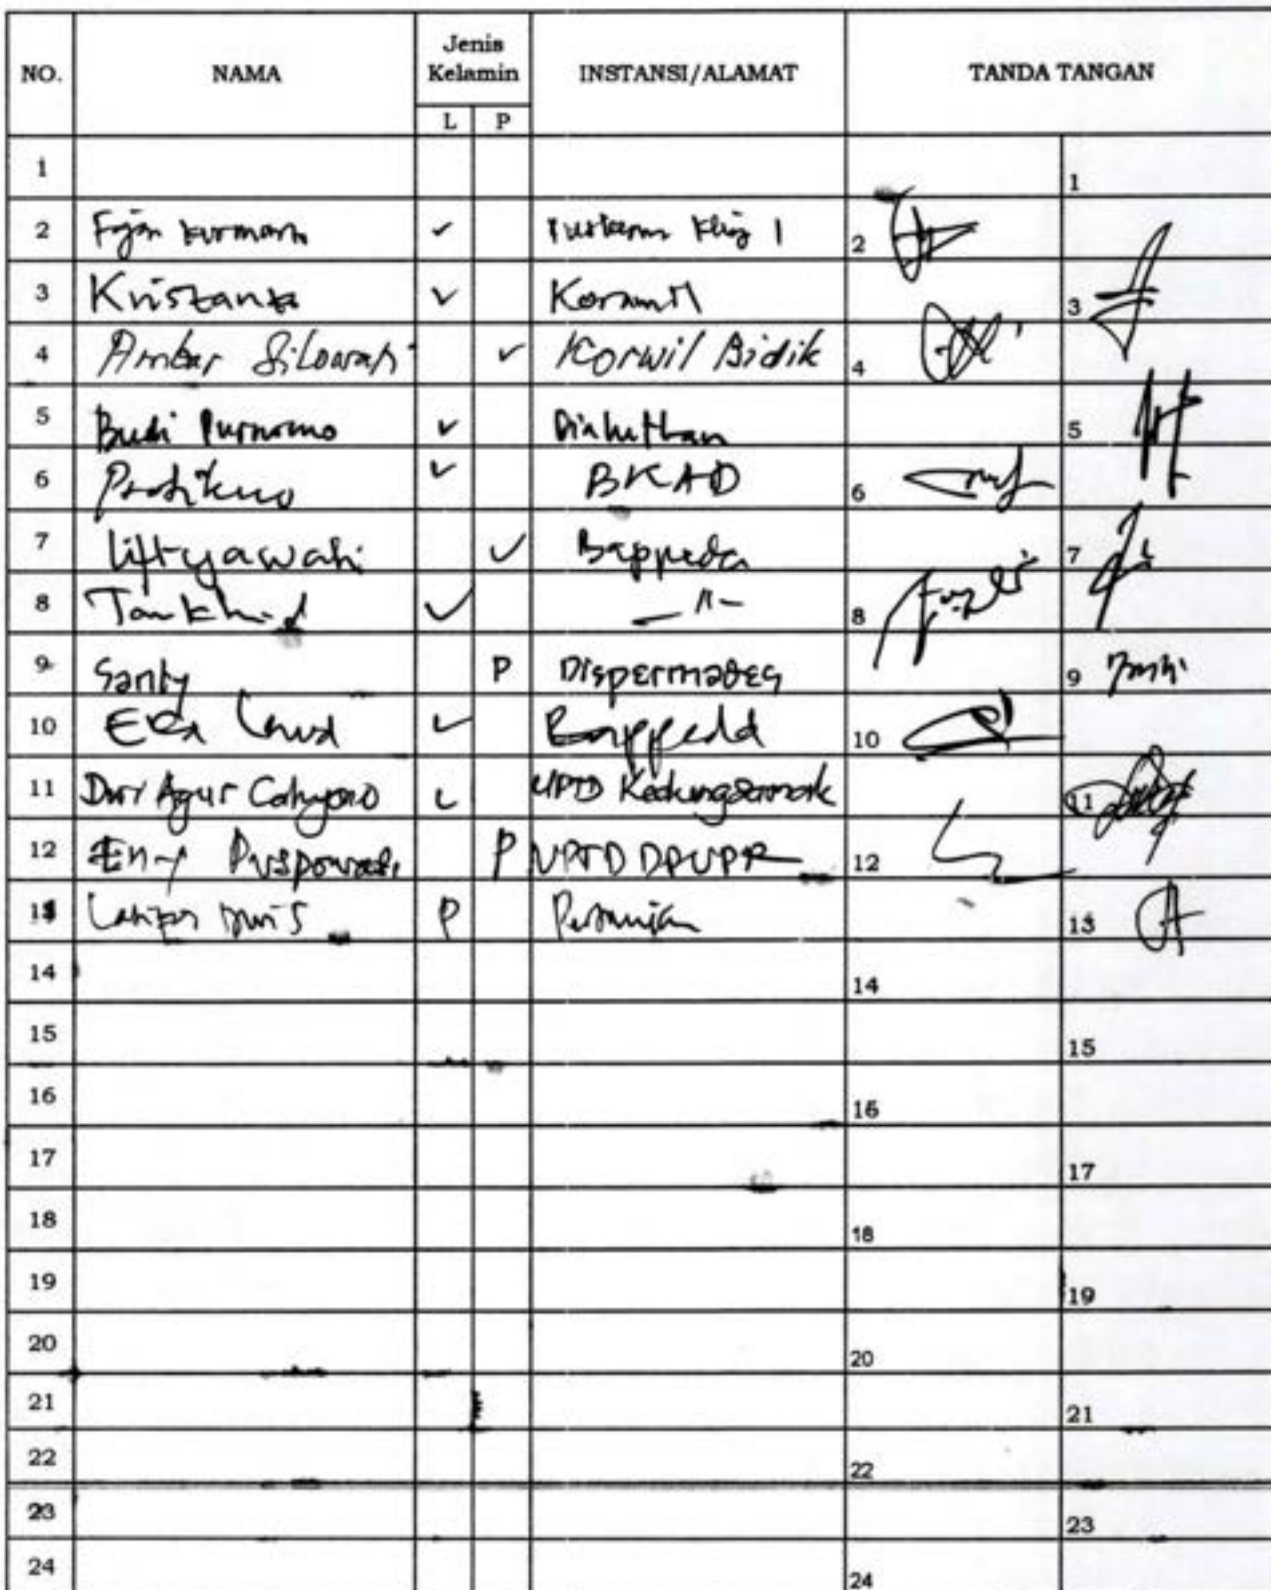 NO. NAMA Jenis Kelamin INSTANSI/ALAMAT TANDA TANGAN
L P
1 1
2 Fajar Kurniawan ✓ Klig 1 2
3 Kristanto ✓ Koramil 3
4 Ambar Silowati ✓ Korwil Bidik 4
5 Budi Purnomo ✓ Dinhutban 5
6 Pratikno ✓ BKAD 6
7 Liftyawati ✓ Bappeda 7
8 Taukhid ✓ —"— 8
9 Santy P Dispermades 9
10 Eka ✓ Bappeda 10
11 Dwi Agus Cahyono ✓ UPTD Kedungbanteng 11
12 Eny Puspowati P UPTD DPUPR 12
13 P 13
14 14
15 15
16 16
17 17
18 18
19 19
20 20
21 21
22 22
23 23
24 24